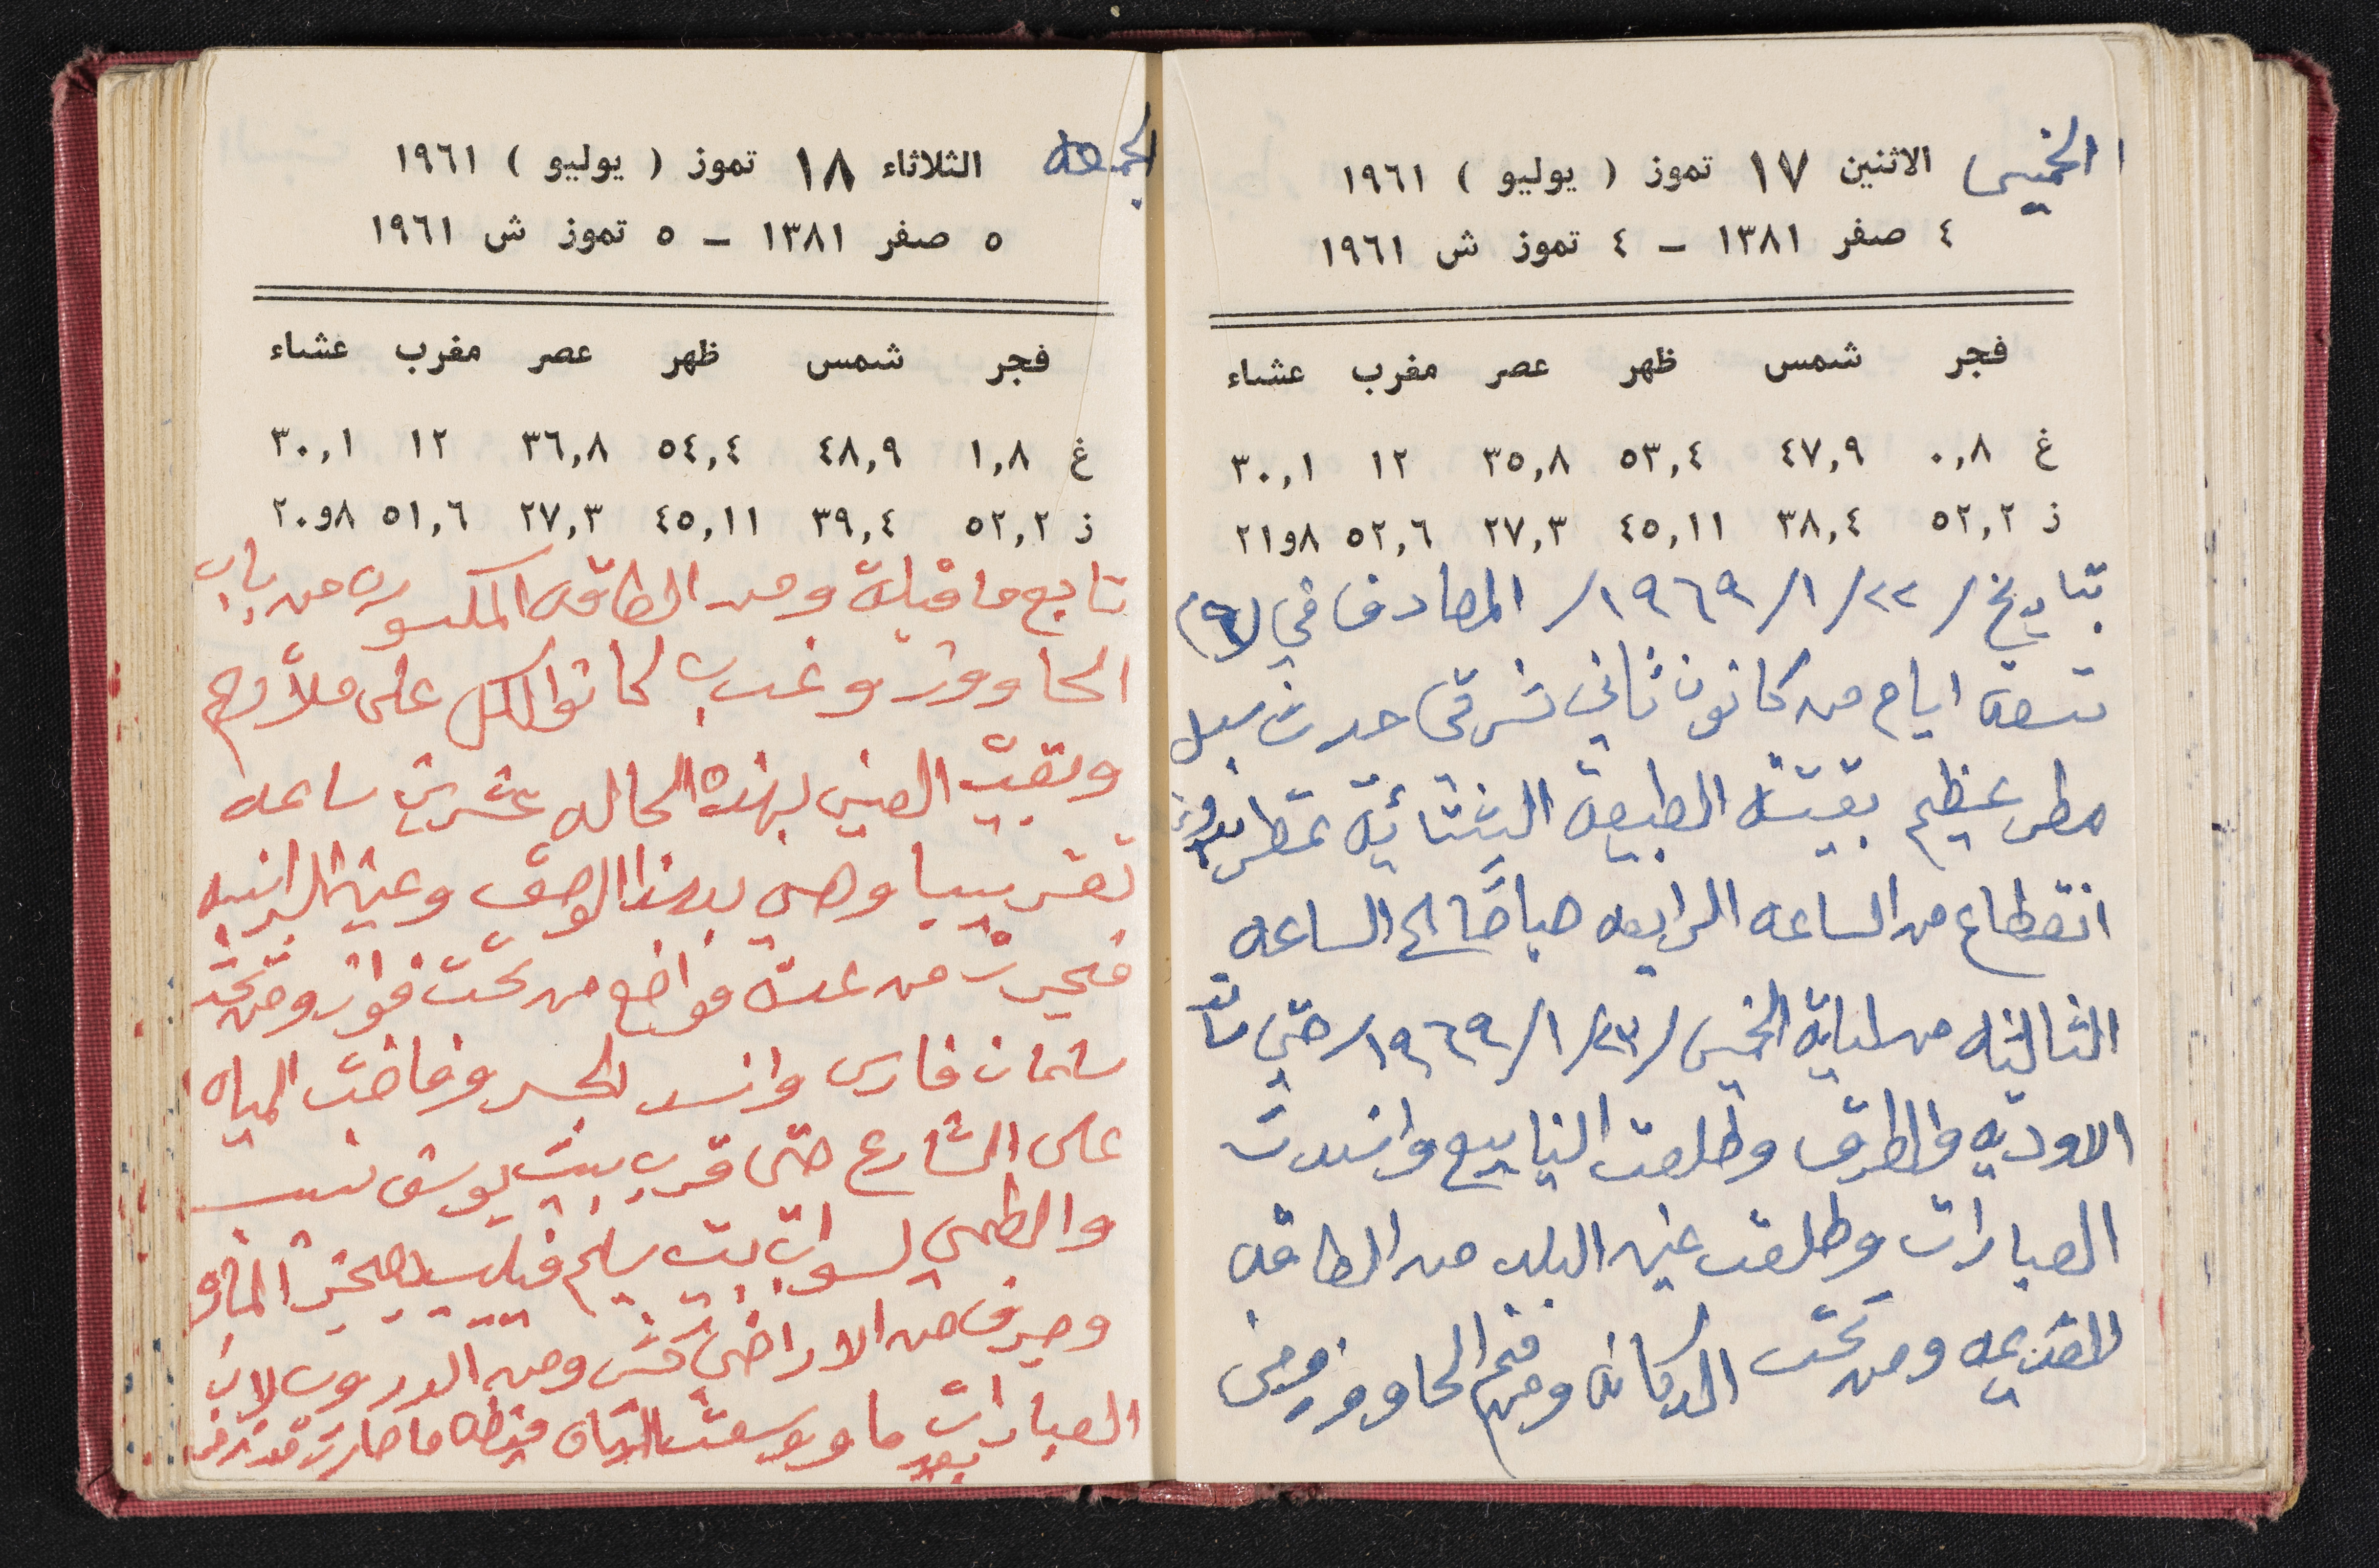 الخميس
الاثنين ١٧ تموز ( يوليو ) ١٩٦١
٤ صفر ١٣٨١ – ٤ تموز ش ١٩٦١
فجر شمس ظهر عصر مغرب عشاء
غ ٠,٨ ٤٧,٩ ٥٣,٤ ٣٥,٨ ١٢ ٣٠,١
ز ٥٢,٢ ٣٨,٤ ٤٥,١١ ٢٧,٣ ٥٢,٦ ٢١و٨
بتاريخ /٢٢/١/١٩٦٩/ المصادف في (٩)
تسعة ايام من كانون ثاني شرقي حدث سيل
مطر عظيم بقيت الطبيعة الشتائية تمطر بدون
انقطاع من الساعه الرابعه صباحًا الى الساعه
الثالثه من لماية الخميس /٢٣/١/١٩٦٩/ حتى
الاوديه والطرق وطلعت الينابيع وانسدت
العبارات وطلعت عين البلد من الطاقه
القديمه ومن تحت الدكانه ومن فم الحاووز ومن
الجمعه
الثلاثاء ١٨ تموز ( يوليو ) ١٩٦١
٥ صفر ١٣٨١ – ٥ تموز ش ١٩٦١
فجر شمس ظهر عصر مغرب عشاء
غ ١,٨ ٤٨,٩ ٥٤,٤ ٣٦,٨ ١٢ ٣٠,١
ز ٥٢,٢ ٣٩,٤ ٤٥,١١ ٢٧,٣ ٥١,٦ ٢٠و٨
تابع ما قبلة ومن الطاقه المكسوره من باب
الحاووز وغب كانوا الكل على ملأهم
وبقيت العين بهذه الحاله عشرين ساعه
تقريبا وهي بهذا الوصف وعين البرانيه
فجرت من عدة مواضع من تحت فواز ومن تحت
سلمان فارس وانسد الجسر وفاضت المياه
على الشارع حتى قرب بيت يوسف نسيب
والطمي لبواب بيت سليم فيليب
وجرف من الاراضي كثير ومن الدروب لان
العبارات بعد ما وسعت ما صارت